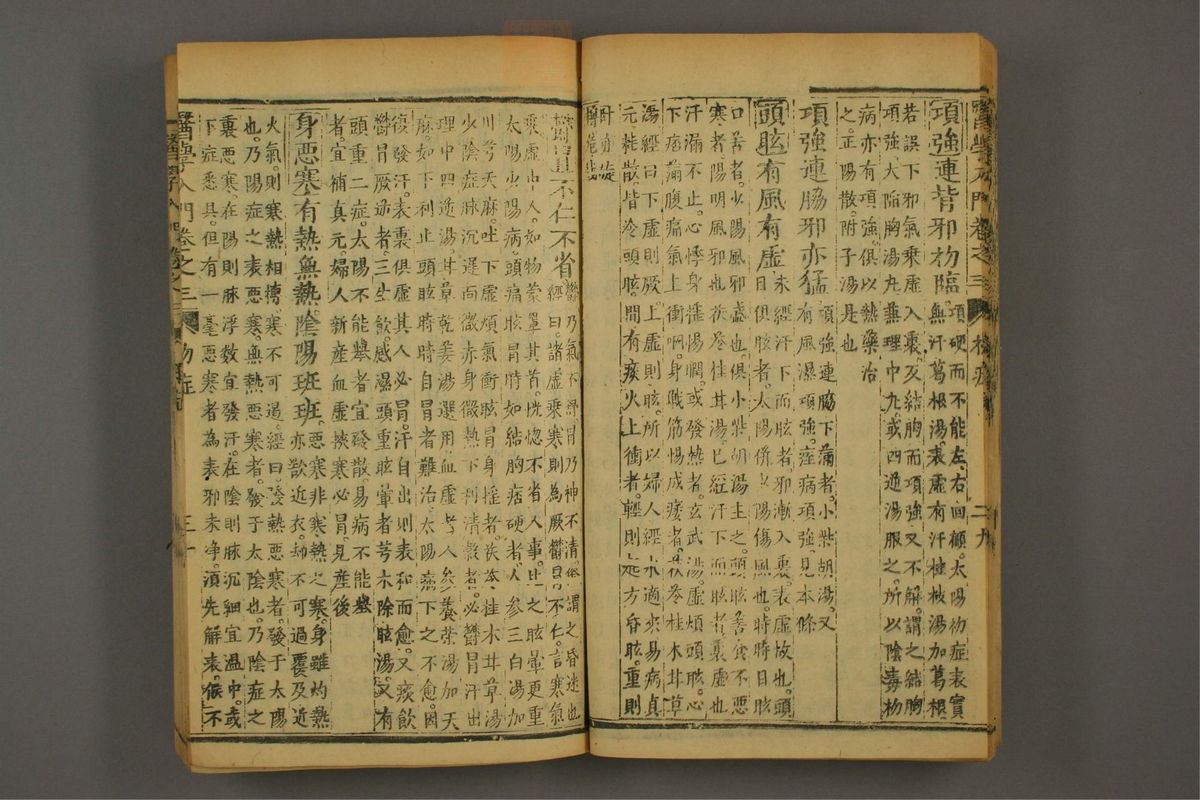 醫學入門卷之三 傷寒 二九
項強連背邪初臨項硬而不能左右回顧太陽初症表實
無汗葛根湯表虛有汗桂枝湯加葛根
若誤下邪氣乘虛入裏反結胸而項強又不解謂之結胸
項強大陷胸湯丸兼理中丸或四逆湯服之所以陰毒初
病亦有項強俱以熱藥治
之正陽散附子湯是也
項強連脇邪亦猛項強連脇下滿者小柴胡湯又
有風濕項強痙病項強見本條
頭眩有風有虛未經汗下而眩者邪漸入裏表虛故也頭
目俱眩者太陽係以陽傷風也時時目眩
口苦者少陽風邪盛也俱小柴胡湯主之頭眩善食不惡
寒者陽明風邪也茯苓桂朮甘湯已經汗下而眩者裏虛也
汗漏不止心悸身搖惕瞤或發熱者玄武湯虛煩頭眩心
下痞滿腹痛氣上衝咽身戰筋惕成痿者茯苓桂朮甘草
湯經曰下虛則厥上虛則眩所以婦人經水適來易病眞
元耗散皆冷頭眩間有痰火上衝者輕則 方昏眩重則
鬱冒不仁不省鬱乃氣不舒冒乃神不清俗謂之昏迷也
經曰諸虛乘寒則為厥鬱冒不仁言寒氣
乘虛中人如物蒙罩其首恍惚不省人事比之眩暈更重
太陽少陽病頭痛眩冒時如結胸痞硬者人參三白湯加
川芎天麻吐下虛煩氣衝眩冒身搖者茯苓桂朮甘草湯
少陰症脉沉遲面少赤身微熱下利清穀者必鬱冒汗出
理中四逆湯甘草乾姜湯選用血虛者人參養榮湯加天
麻如下利止頭眩時時自冒者難治太陽病下之不愈因
復發汗表裏俱虛其人必冒汗自出則表和而愈又痰飲
鬱冒厥逆者三生飲感濕頭重眩暈者芎朮除眩湯又有
頭重二症太陽不能舉者宜發散易病不能舉
者宜補真元婦人新産血虛挾寒必冒見産後
身惡寒有熱無熱陰陽班班惡寒非寒熱之寒身雖灼熱
亦欲近衣刼不可過覆及近
火氣則寒熱相摶寒不可遏經曰發熱惡寒者發于太陽
也乃陽症之表惡寒無熱惡寒者發于太陰也乃陰症之
裏惡寒在陽則脉浮數宜發汗在陰則脉沉細宜溫中或
下症悉具但有一毫惡寒者為表邪未净須先解表俟不
醫學入門卷之三 三十